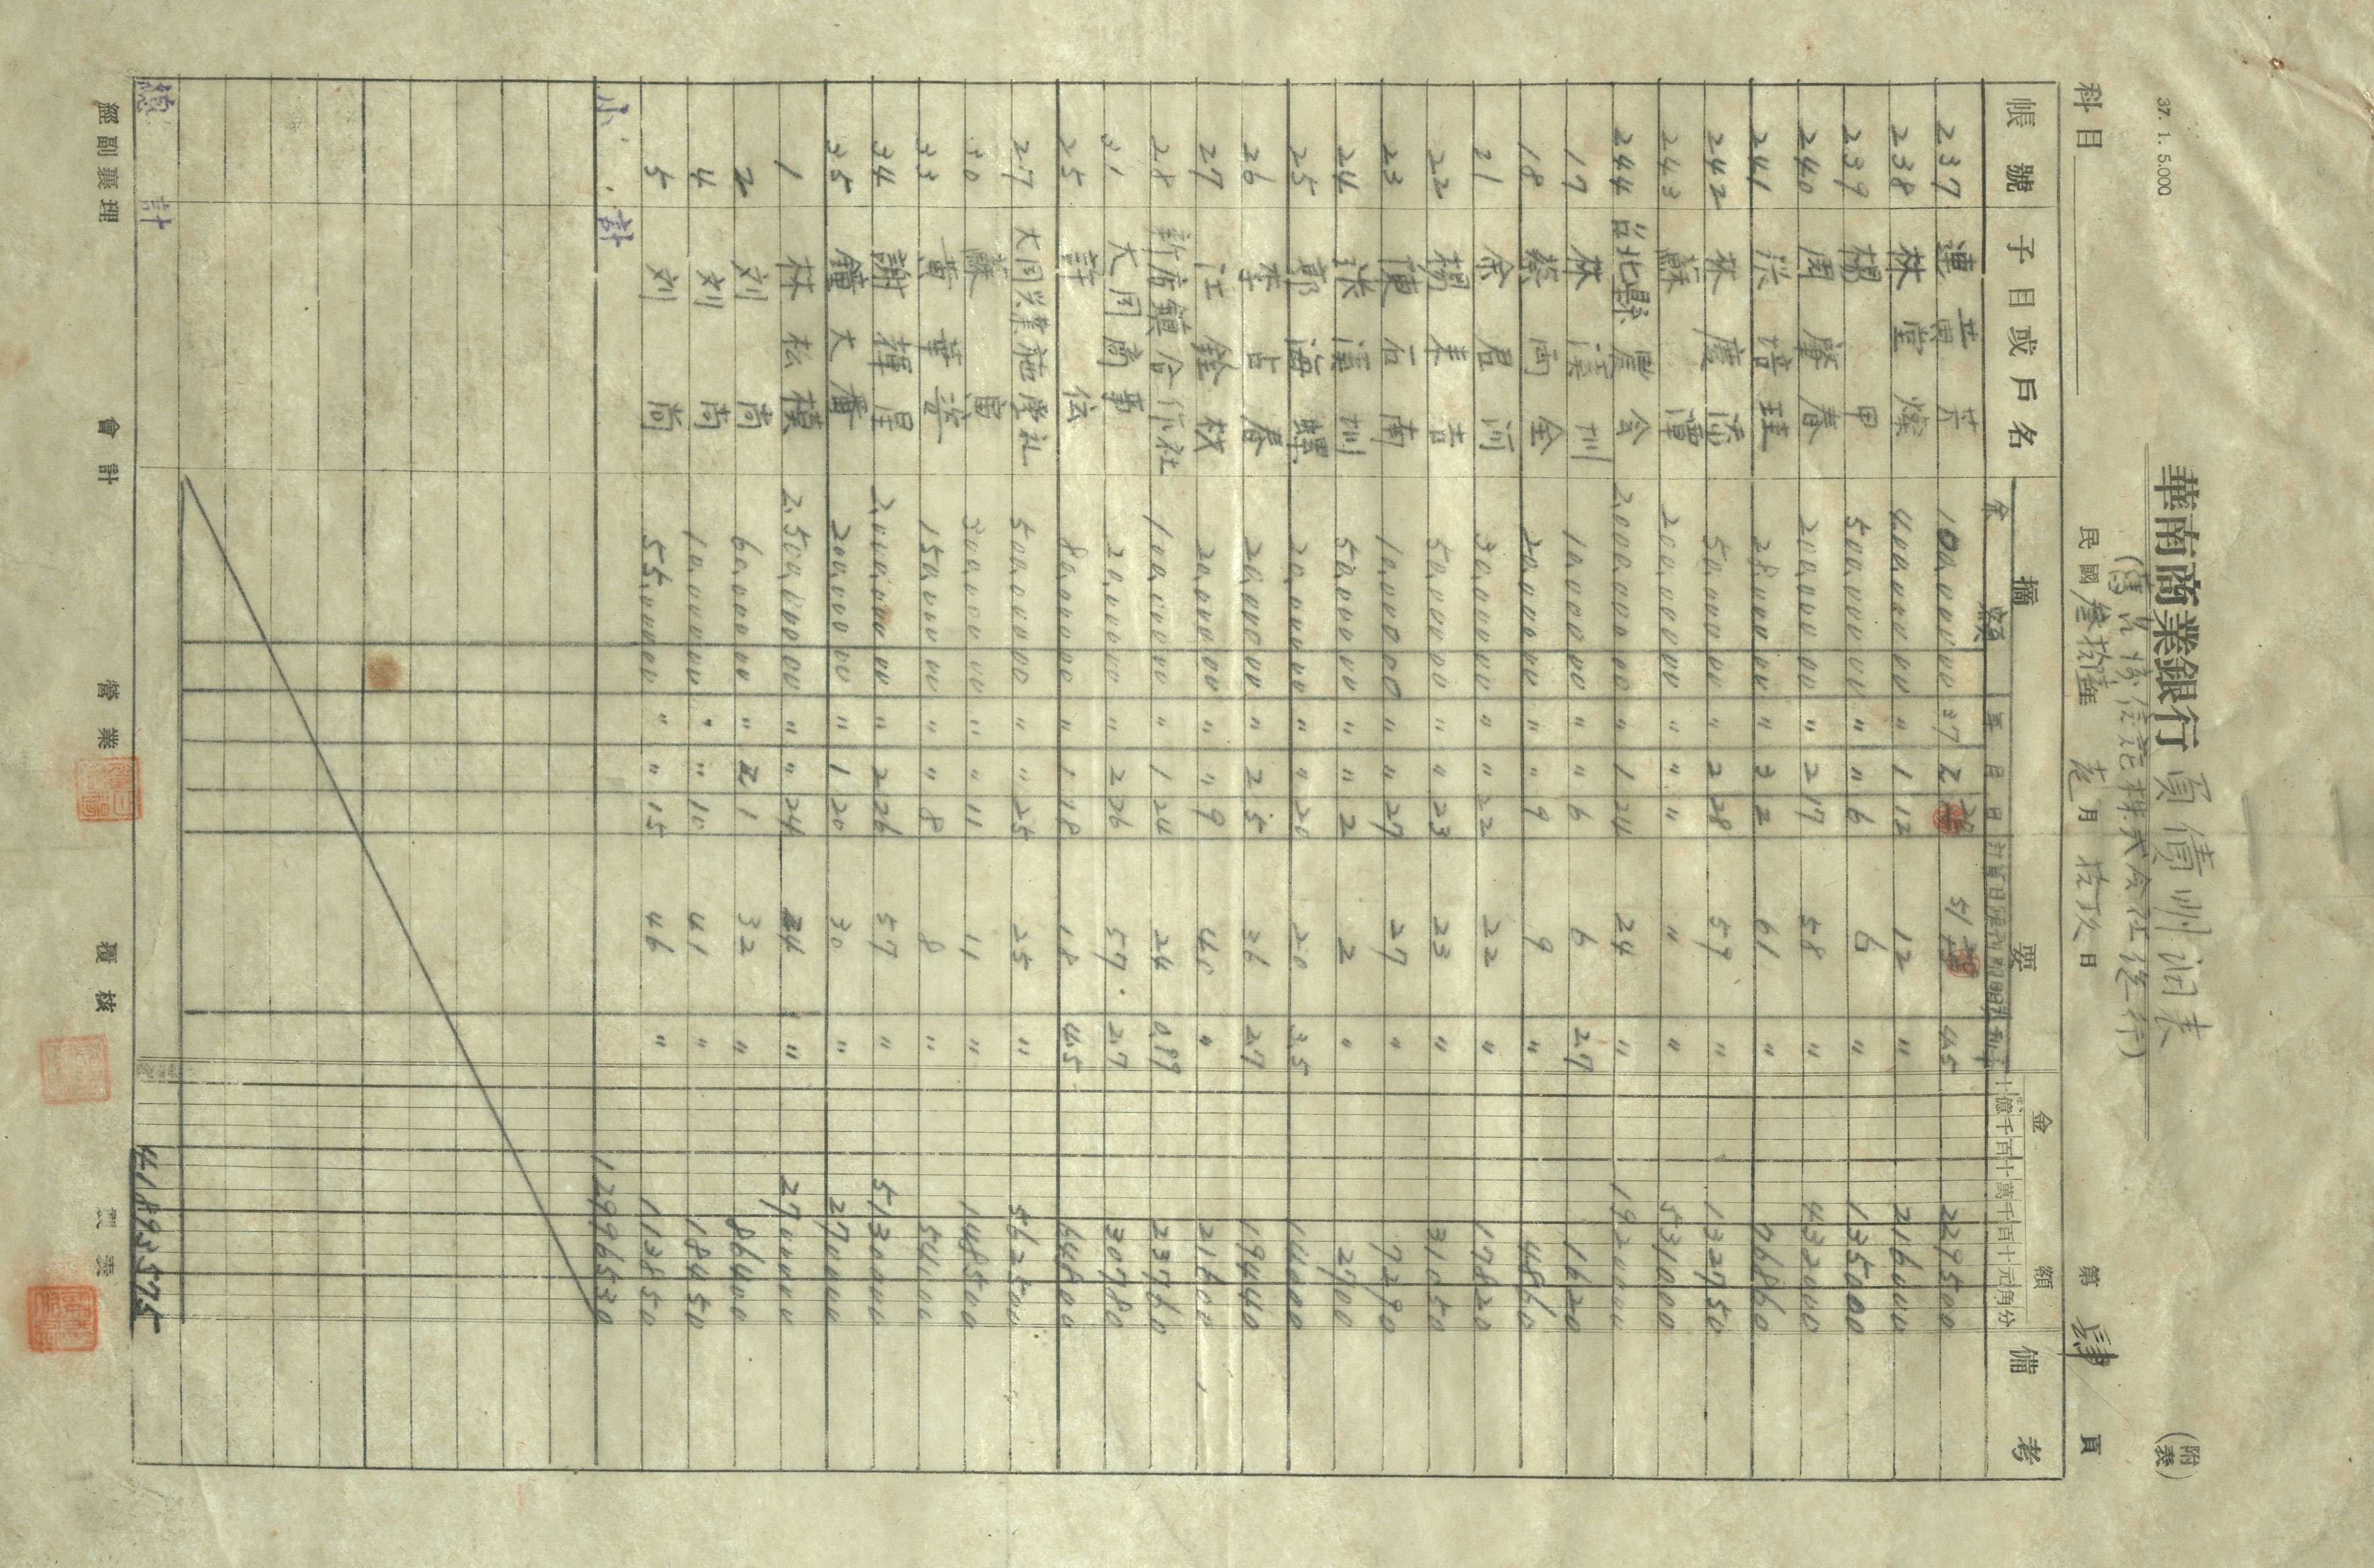 37. 1. 5.000
(附表)
華南商業銀行 負債明細表
科目
民國 叁拾陸年 月 拾玖日
第 肆 頁
帳號 子目或戶名 摘要 金額 備考
金額 年 月 日 利率
十億千百十萬千百十元角分
237 連 芳 100,000.00 37 2 45 2295.00
238 林堂燦 400,000.00 〃 1 12 12 〃 2160.00
239 楊 甲 500,000.00 〃 〃 6 6 〃 1350.00
240 周肇春 200,000.00 〃 2 17 58 〃 4320.00
241 培珪 28,000.00 〃 3 2 61 〃 768.60
242 林慶 50,000.00 〃 2 28 59 〃 1327.50
243 蘇 潭 200,000.00 〃 〃 〃 〃 〃 5310.00
244 台北縣農會 2,000,000.00 〃 1 24 24 〃 19200.00
17 林溪圳 10,000.00 〃 〃 6 6 2.7 16.20
18 蔡両金 20,000.00 〃 〃 9 9 〃 48.60
21 余君河 30,000.00 〃 〃 22 22 〃 178.20
22 楊 吉 50,000.00 〃 〃 23 23 〃 310.50
23 陳石南 10,000.00 〃 〃 27 27 〃 72.90
24 張漢圳 50,000.00 〃 〃 2 2 〃 27.00
25 郭海螺 20,000.00 〃 〃 20 20 3.5 140.00
26 李占春 20,000.00 〃 2 5 36 2.7 194.40
27 汪銓枝 20,000.00 〃 〃 9 40 〃 216.00
28 新店鎮合作社 100,000.00 〃 1 24 24 0.99 237.60
31 大同商事 20,000.00 〃 2 26 57 2.7 307.80
25 許 伝 80,000.00 〃 1 18 18 4.5 648.00
27 大同 500,000.00 〃 〃 25 25 〃 5625.00
30 蘇 300,000.00 〃 〃 11 11 〃 1485.00
33 黃華 150,000.00 〃 〃 8 8 〃 540.00
34 謝輝星 2,000,000.00 〃 2 26 57 〃 51300.00
35 鐘大番 200,000.00 〃 1 20 30 〃 2700.00
1 林松模 2,500,000.00 〃 〃 24 24 〃 27000.00
2 刘 尚 60,000.00 〃 2 1 32 〃 864.00
4 刘 尚 10,000.00 〃 〃 10 41 〃 184.50
5 刘 尚 55,000.00 〃 〃 15 46 〃 1138.50
小計 129965.30
總計 418935.75
經副襄理 會計 營業 覆核 製表